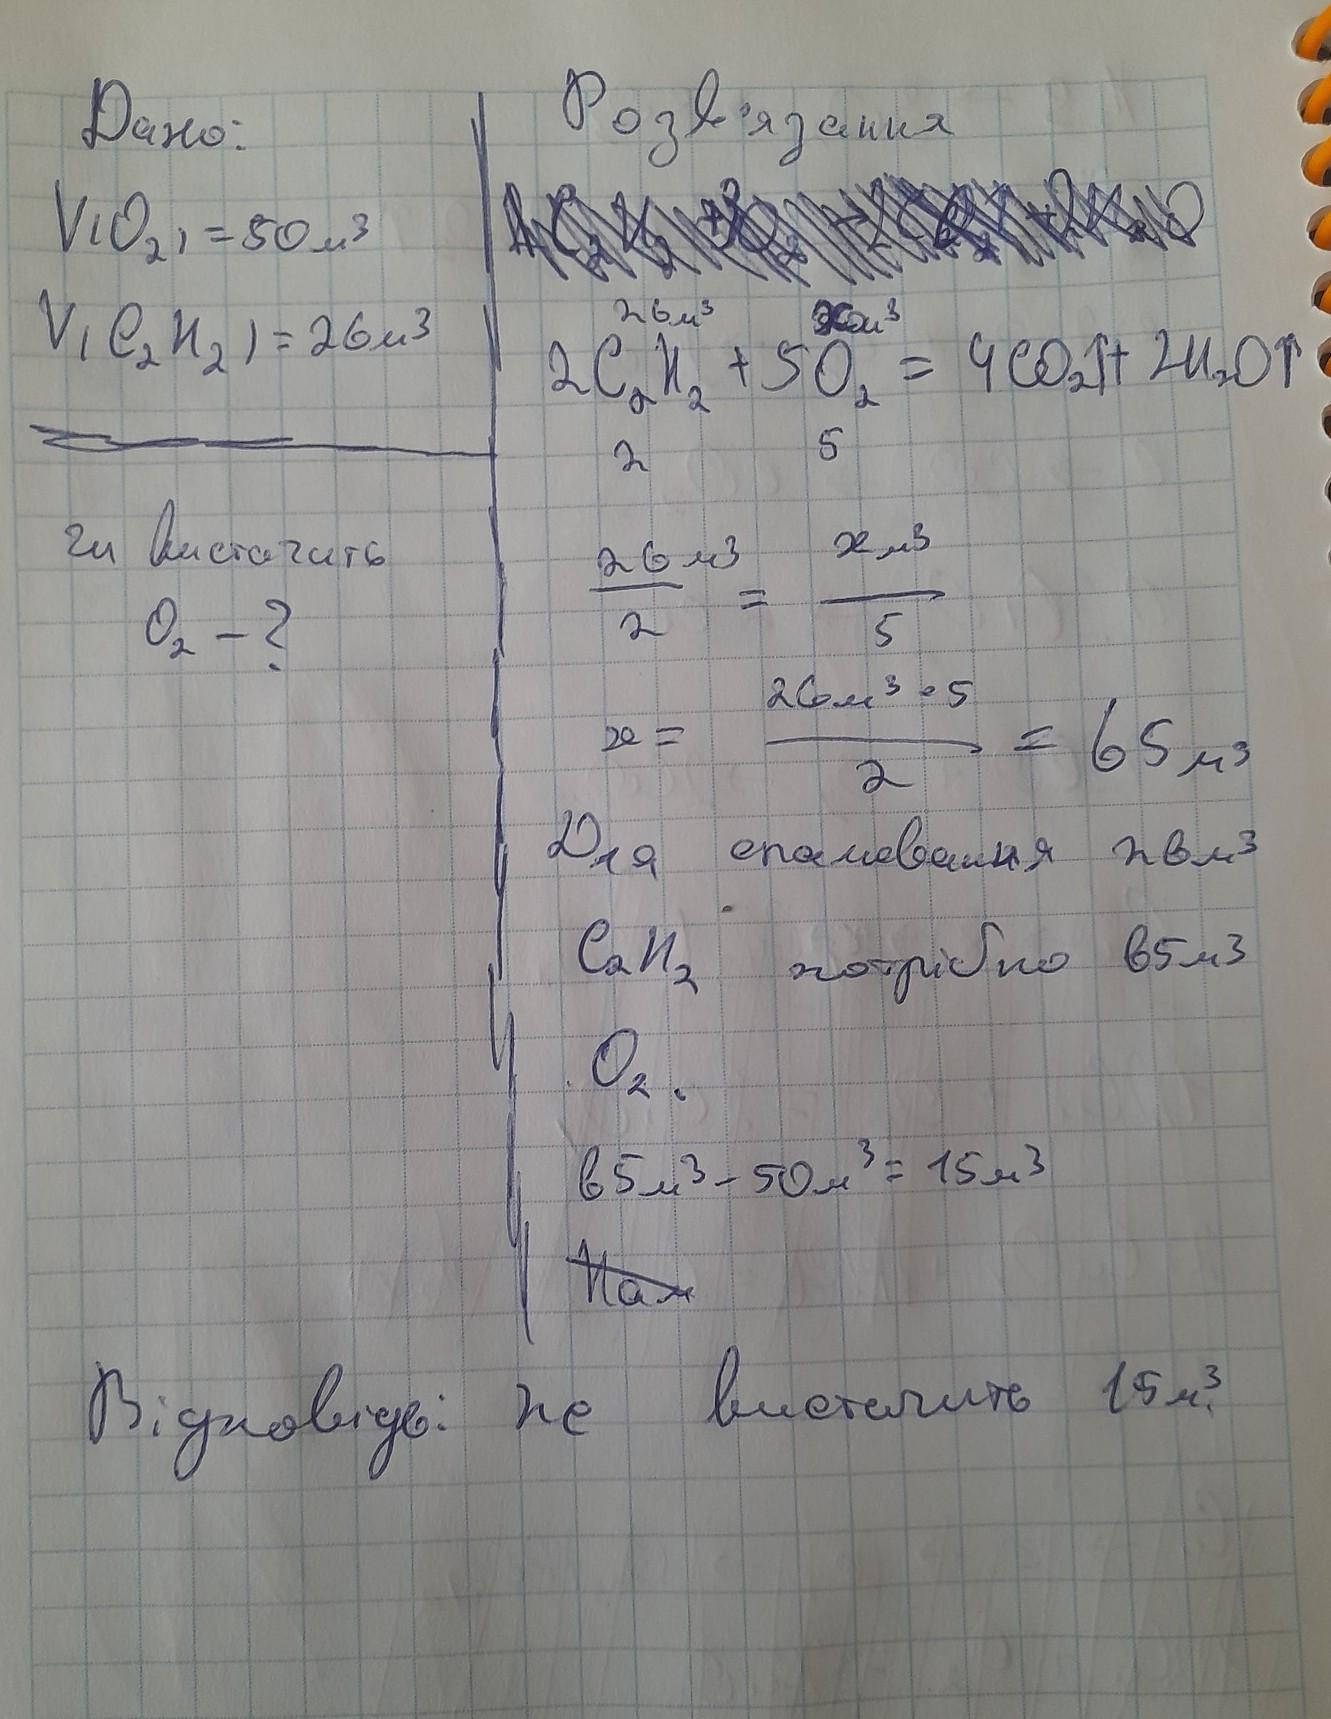 Дано:
V(O₂) = 50 м³
V(C₂H₂) = 26 м³
чи вистачить
O₂ - ?
Розв'язання
26 м³ x м³
2C₂H₂ + 5O₂ = 4CO₂↑ + 2H₂O↑
2 5
26 м³/2 = x м³/5
x = 26 м³ · 5/2 = 65 м³
Для спалювання 26 м³
C₂H₂ потрібно 65 м³
O₂.
65 м³ - 50 м³ = 15 м³
Нам
Відповідь: не вистачить 15 м³.